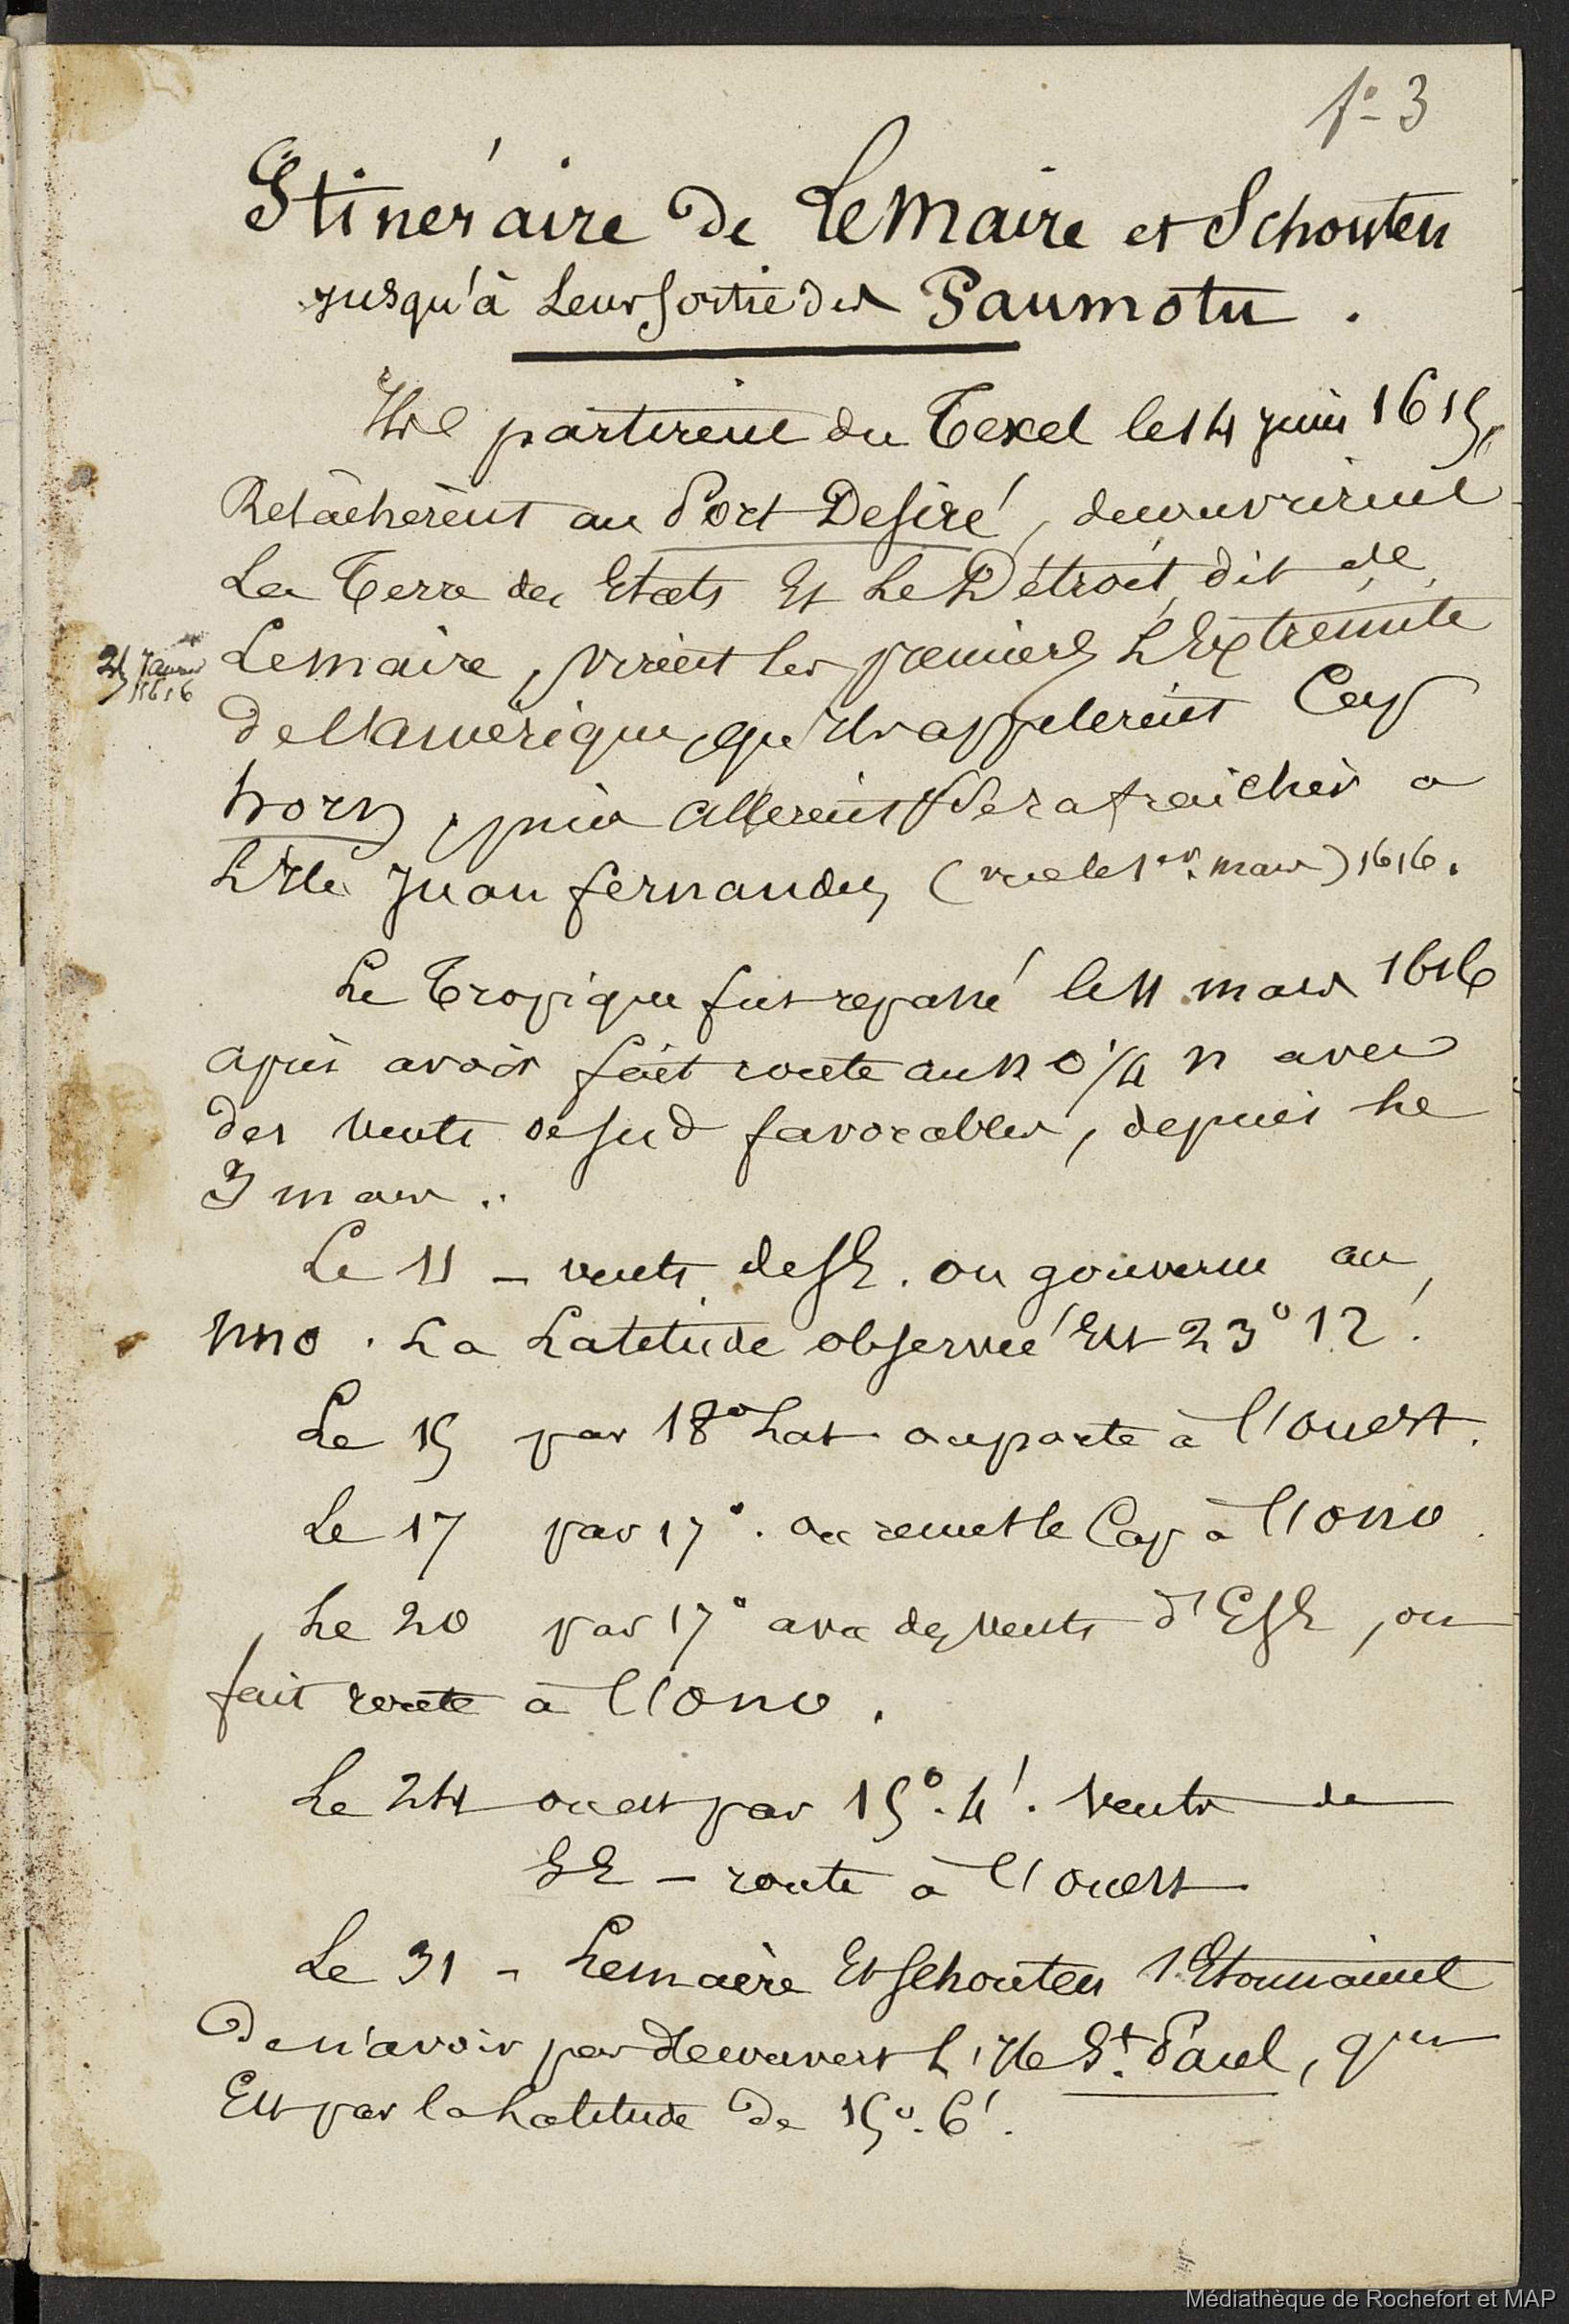 fo 3
Itinéraire de Lemaire et Schouten
jusqu'à leur sortie des Paumotu.
Ils partirent du Texel le 14 juin 1615,
Relâchèrent au Port Desiré, decouvrirent
La Terre des Etats Et Le Détroit, dit de
25 Janvier 1616
Lemaire, virent les premiers L'Extrémité
de l'amérique, qu'ils appelerent Cap
horn, puis allerent se rafraichir a
L'Ile Juan fernandez (vue le 1er. mars) 1616.
Le Tropique fut repassé le 11 mars 1616
après avoir fait route au n o 1/4 n avec
des vents de sud favorables, depuis le
3 mars.
Le 11 – vents de SE. on gouverne au
nno. La Latitude observée Est 23° 12'.
Le 15 par 18° Lat on porte à l'ouest.
Le 17 par 17°. on remet le Cap à l'ono.
Le 20 par 17° avec des vents d'ESE, on
fait route à l'ono.
Le 24 on est par 15°. 4'. Vents de
SE – route à l'ouest
Le 31 – Lemaire Et Schouten s'Etonnaient
De n'avoir pas découvert L'Ile St. Paul, qui
Est par la Latitude de 15°. 6'.
Médiathèque de Rochefort et MAP